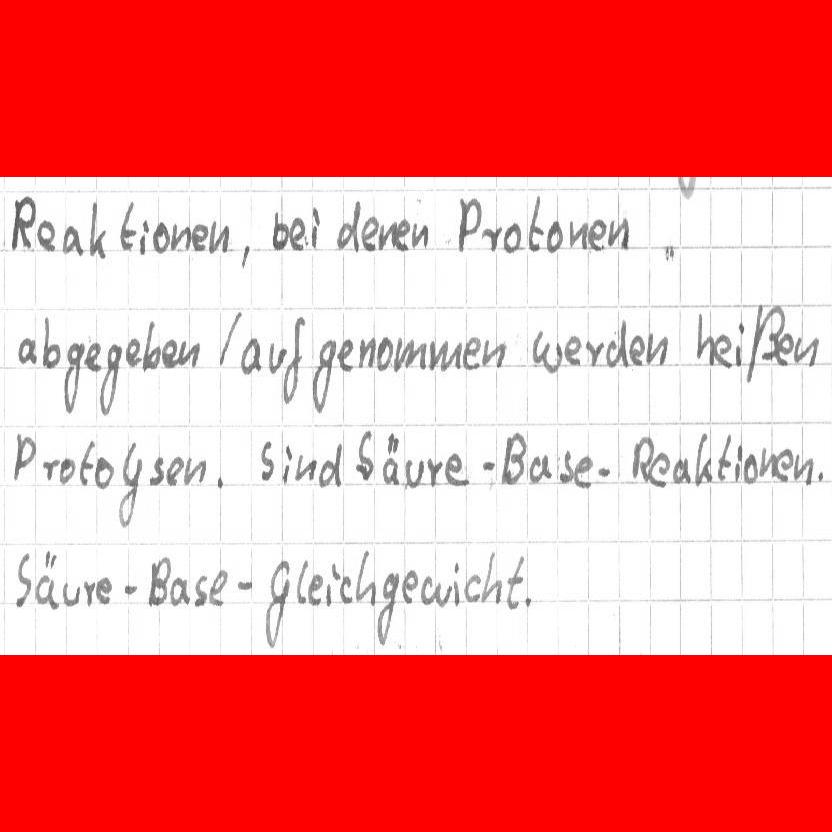 Reaktionen, bei denen Protonen
abgegeben / aufgenommen werden heißen
Protolysen. Sind Säure-Base-Reaktionen.
Säure-Base-Gleichgewicht.